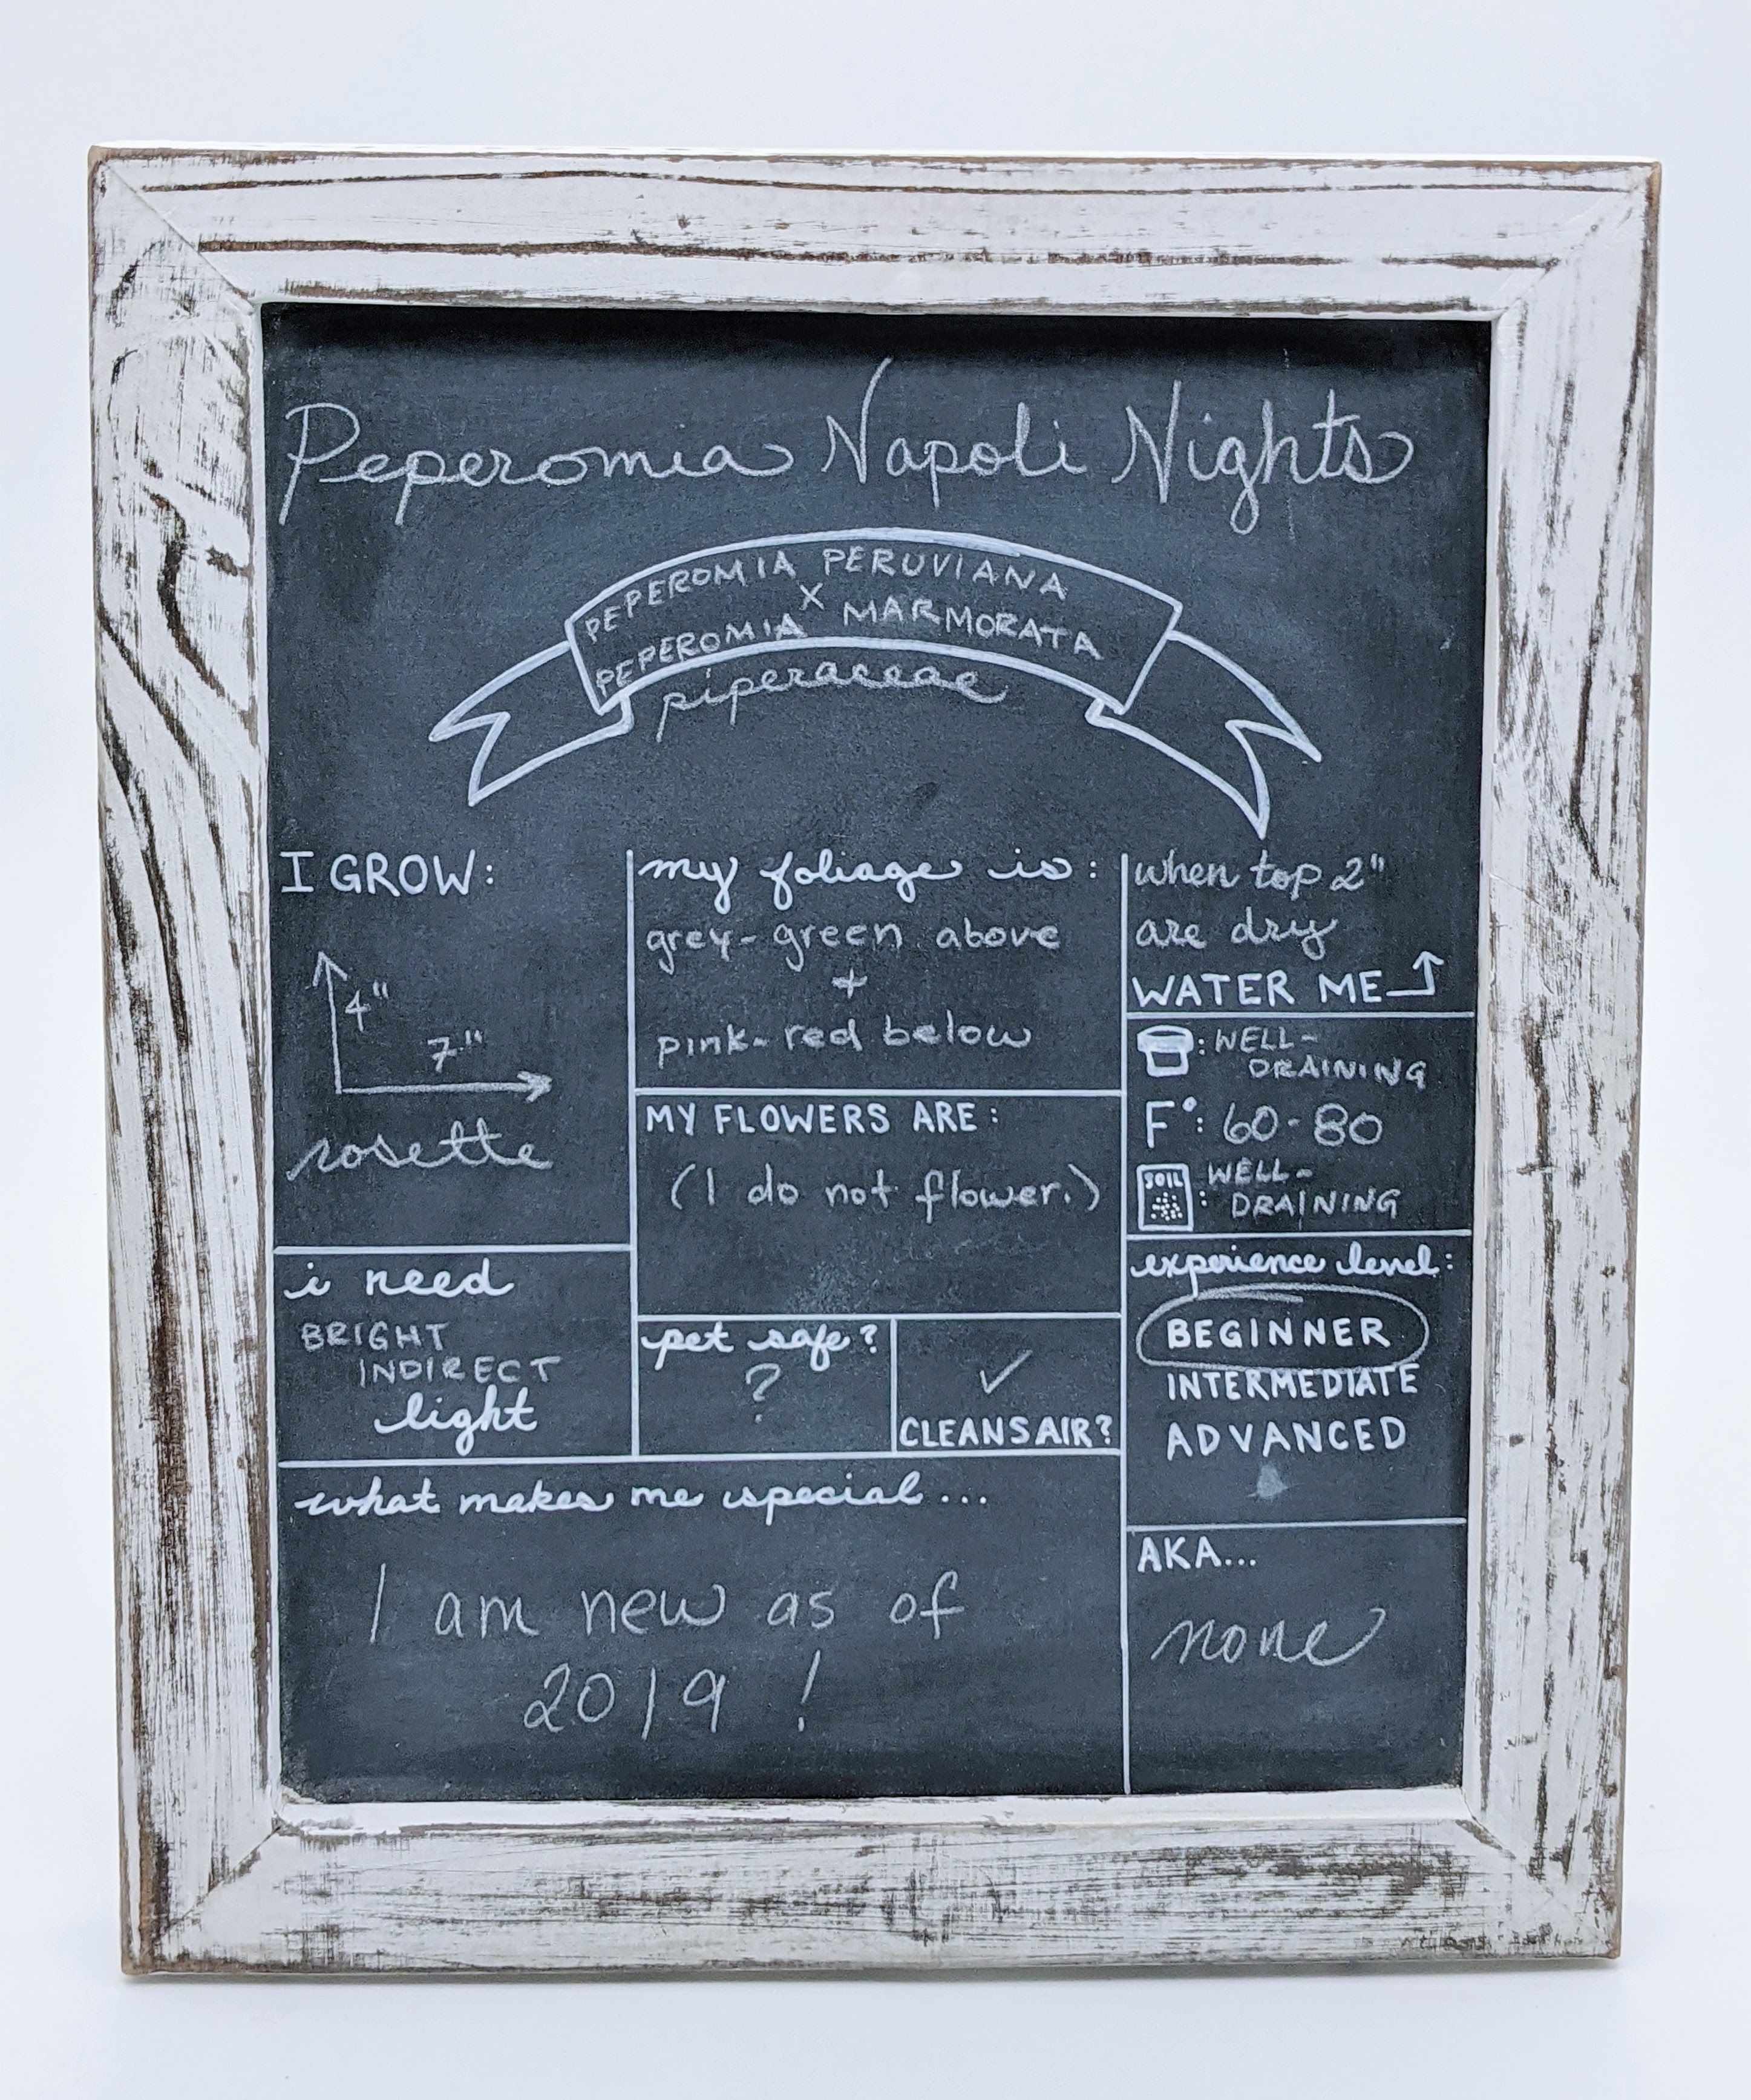 Peperomia Napoli Nights
PEPEROMIA PERUVIANA
X
PEPEROMIA MARMORATA
piperaceae
I GROW:
4"
7"
rosette
i need
BRIGHT
INDIRECT
light
my foliage is:
grey-green above
+
pink-red below
MY FLOWERS ARE:
(I do not flower.)
pet safe?
?
✓
CLEANS AIR?
when top 2"
are dry
WATER ME
: WELL-
DRAINING
F°: 60-80
SOIL : WELL-
DRAINING
experience level:
BEGINNER
INTERMEDIATE
ADVANCED
what makes me special...
I am new as of
2019 !
AKA...
none